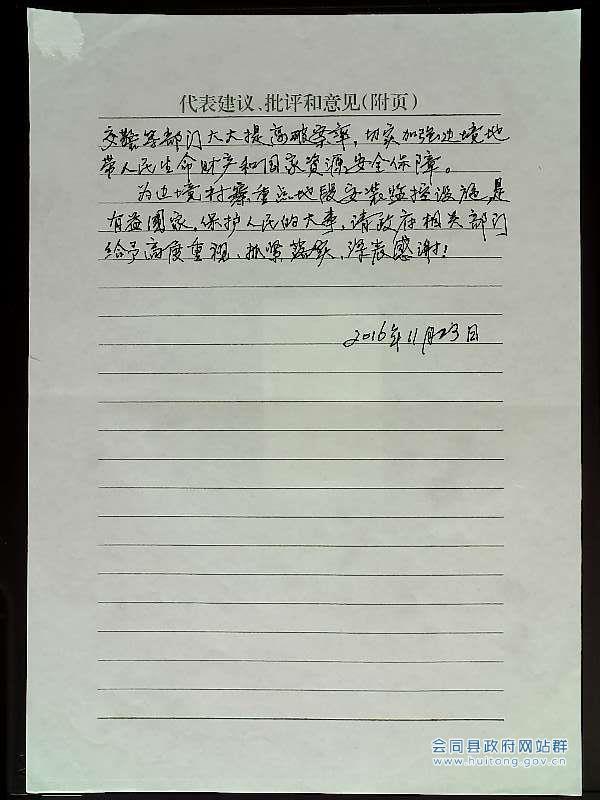 代表建议、批评和意见(附页)
交警等部门大大提高破案率，切实加强边境地
带人民生命财产和国家资源安全保障。
为边境村寨重点地段安装监控设施，是
有益国家，保护人民的大事，请政府相关部门
给予高度重视、抓紧落实，深表感谢！
2016年11月23日
会同县政府网站群
www.huitong.gov.cn